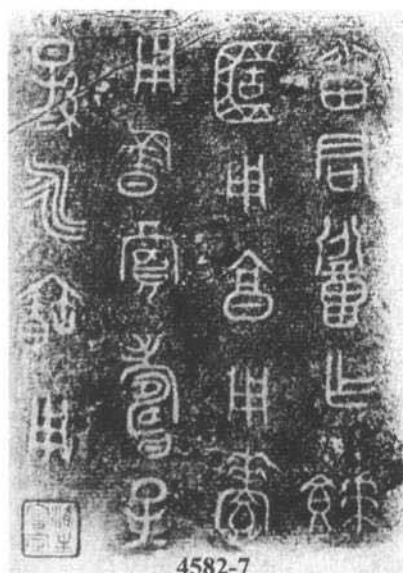 番君召乍饙
簠用亯用孝
用祈眉壽子
孫永寶用
4582-7